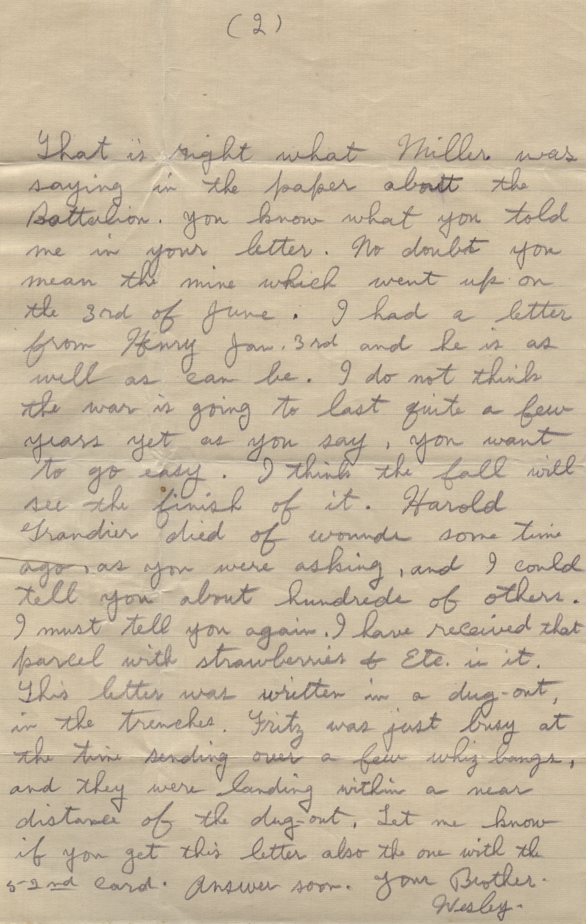 (2)
That is right what Miller was
saying in the paper about the
Battalion. You know what you told
me in your letter. No doubt you
mean the mine which went up on
the 3rd of June. I had a letter
from Henry Jan. 3rd and he is as
well as can be. I do not think
the war is going to last quite a few
years yet as you say, you want
to go easy. I think the fall will
see the finish of it. Harold
Grandier died of wounds some time
ago, as you were asking, and I could
tell you about hundreds of others.
I must tell you again. I have received that
parcel with strawberries & Etc. in it.
This letter was written in a dug-out,
in the trenches. Fritz was just busy at
the time sending over a few whiz-bangs,
and they were landing within a near
distance of the dug-out. Let me know
if you get this letter also the one with the
52nd card. Answer soon. Your Brother.
Wesley.